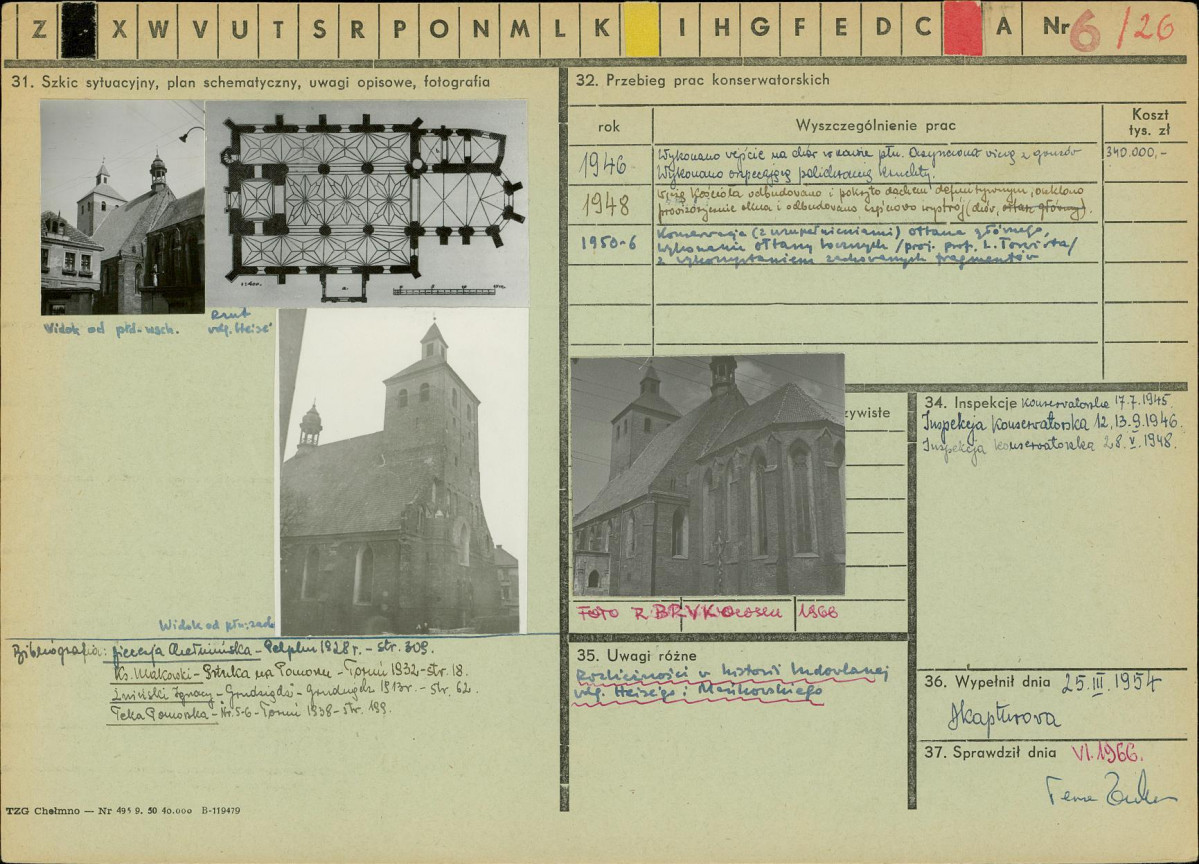 Z X W V U T S R P O N M L K I H G F E D C A Nr 6/26
31. Szkic sytuacyjny, plan schematyczny, uwagi opisowe, fotografia
Widok od płd-wsch.
Rzut
wdg. Heise'
Widok od płn.zach
Bibliografia: Diecezja Chełmińska - Pelplin 1928 r. - str. 309.
Ks. Makowski - Sztuka na Pomorzu - Toruń 1932 - str. 18.
Ignacy - Grudziądz - Grudziądz 1913 r. - str. 62.
Teka Pomorska - Nr. 5-6 - Toruń 1938 - str. 189.
TZG Chełmno — Nr 495 9. 50 40.000 B-119479
32. Przebieg prac konserwatorskich
rok
Wyszczególnienie prac
Koszt
tys. zł
1946
Wykonano wejście na chór w nawie płn. Oczyszczono wieżę z gruzów
340.000,-
Wykonano polichromię kruchty.
1948
Wieżę Kościoła odbudowano i pokryto dachem definitywnym, oszklono
prowizorycznie okna i odbudowano częściowo wystrój (chór, ołtarz główny).
1950-6
Konserwacja (z uzupełnieniami) ołtarza głównego,
wykonanie ołtarzy bocznych /proj. prof. L. Torwirta/
z wykorzystaniem zachowanych fragmentów
zywiste
FOTO R. BRYKOWSKI 1966
34. Inspekcje Konserwatorska 17.7.1945
Inspekcja Konserwatorska 12,13.9.1946.
Inspekcja Konserwatorska 28.V.1948.
35. Uwagi różne
Rozbieżności w historii budowlanej
wdg. Heisego i Mańkowskiego
36. Wypełnił dnia 25.III.1954
37. Sprawdził dnia VI.1966.